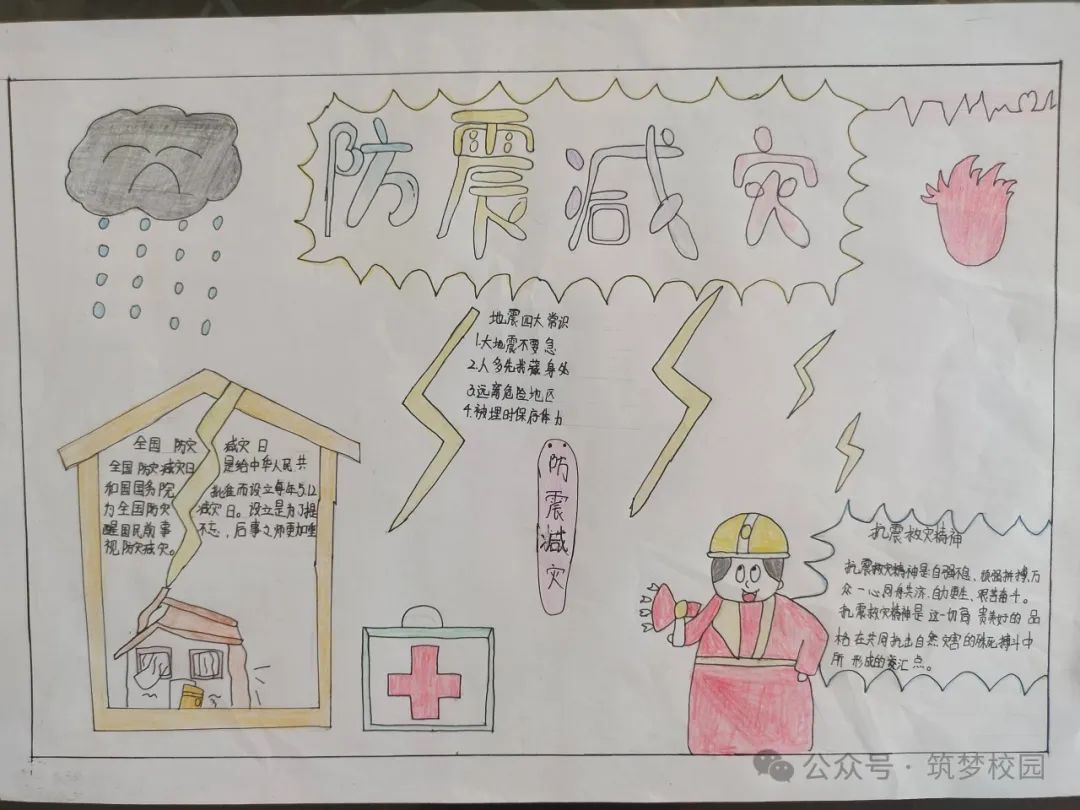 防震减灾
地震四大常识
1.大地震不要急
2.人多先找藏身处
3.远离危险地区
4.被埋时保存体力
防震减灾
全国防灾减灾日
全国防灾减灾日是给中华人民共
和国国务院批准而设立每年5.12
为全国防灾减灾日。设立是为了提
醒国民前事不忘，后事之师更加重
视，防灾减灾。
抗震救灾精神
抗震救灾精神是自强不息、顽强拼搏，万
众一心同舟共济，自力更生、艰苦奋斗。
抗震救灾精神是这一切高贵美好的品
格在共同抗击自然灾害的殊死搏斗中
所形成的汇点。
公众号·筑梦校园